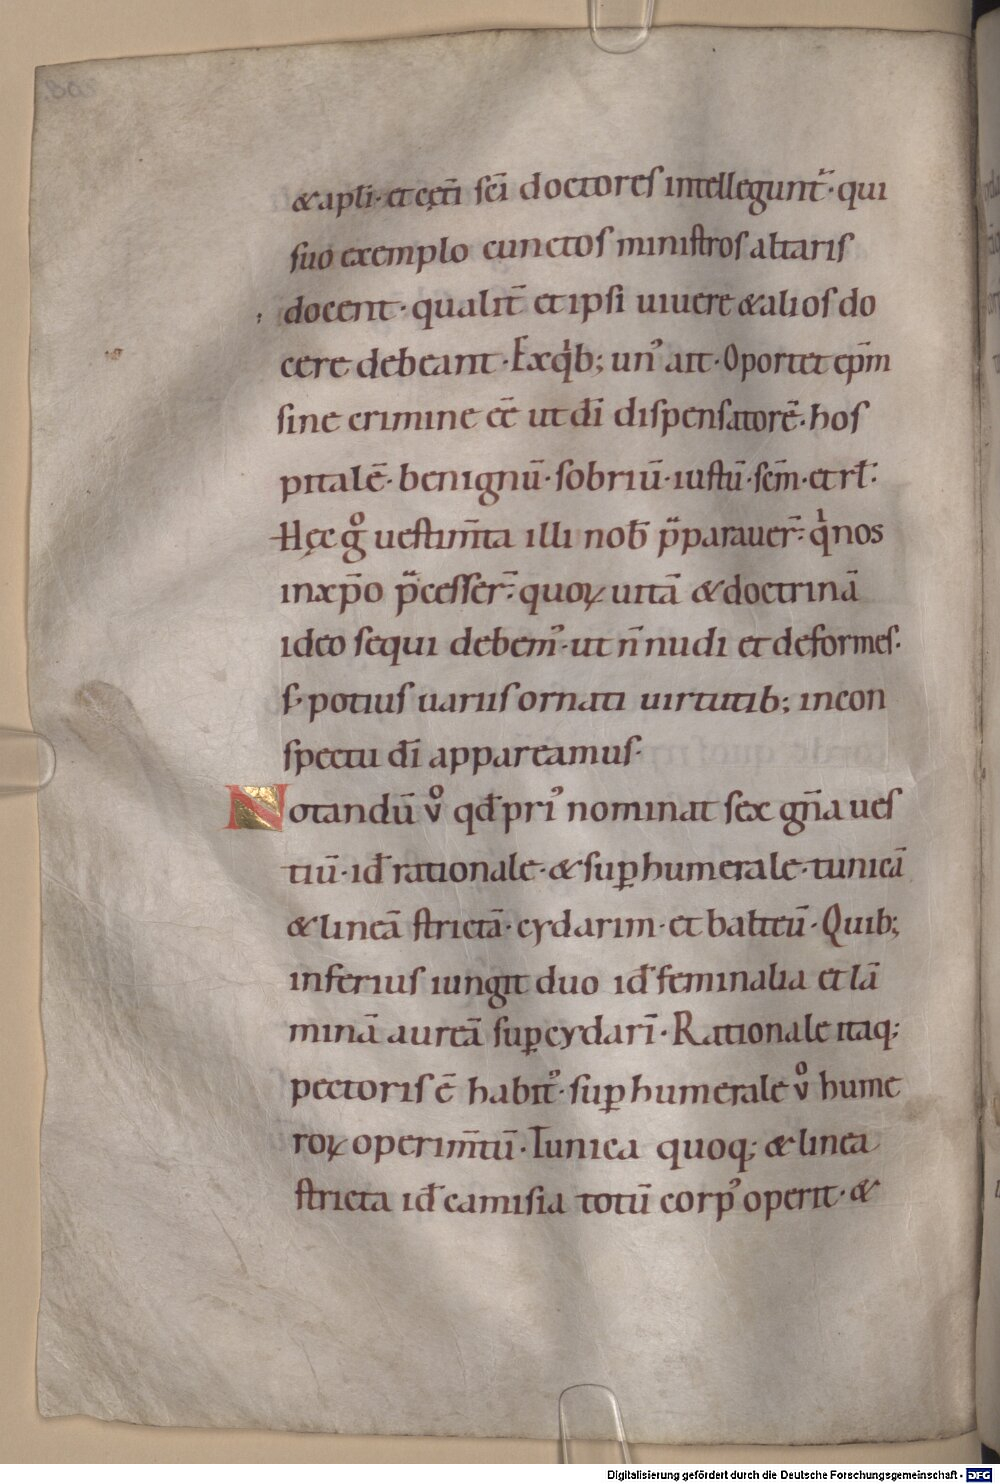 & apƚi· et cęti sci doctores intellegunt᷑· qui
suo exemplo cunctos ministros altaris
docent· qualit̄ et ipsi uiuere & alios do
cere debeant· Exqͥb; unꝰ ait· Oportet epm̄
sine crimine eē ut dī dispensatorē· hos
pitalē· benignū· sobriū· iustū· scm̄· et rƚ·
Hęc gͦ uestim̄ta illi nob̄ p̃parauer̄· qͥ nos
in xp̄o p̃cesser̄· quoꝝ uitā & doctrinā
ideo sequi debemꝰ· ut n̄ nudi et deformes·
s; potius uariis ornati uirtutib; incon
spectu dī appareamus·
Notandū vͦ qđ priꝰ nominat sex gn̄a ues
tiū· iđ rationale· & suꝑhumerale· tunicā
& lineā strictā· cydarim· et balteū· Quib;
inferius iungit duo iđ feminalia et lā
minā aureā suꝑ cydarī· Rationale itaq;
pectoris ē habitꝰ· suꝑhumerale vͦ hume
roꝝ operim̄tū· Tunica quoq; & linea
stricta iđ camisia totū corpꝰ operit· &
Digitalisierung gefördert durch die Deutsche Forschungsgemeinschaft - DFG